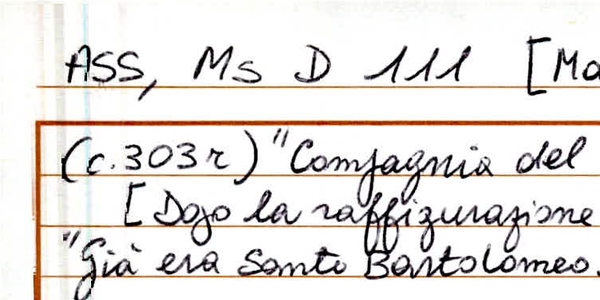 ASS, Ms D 111 [Ma
(c.303r) "Compagnia del
[Dopo la raffigurazione
"Già era Santo Bartolomeo.